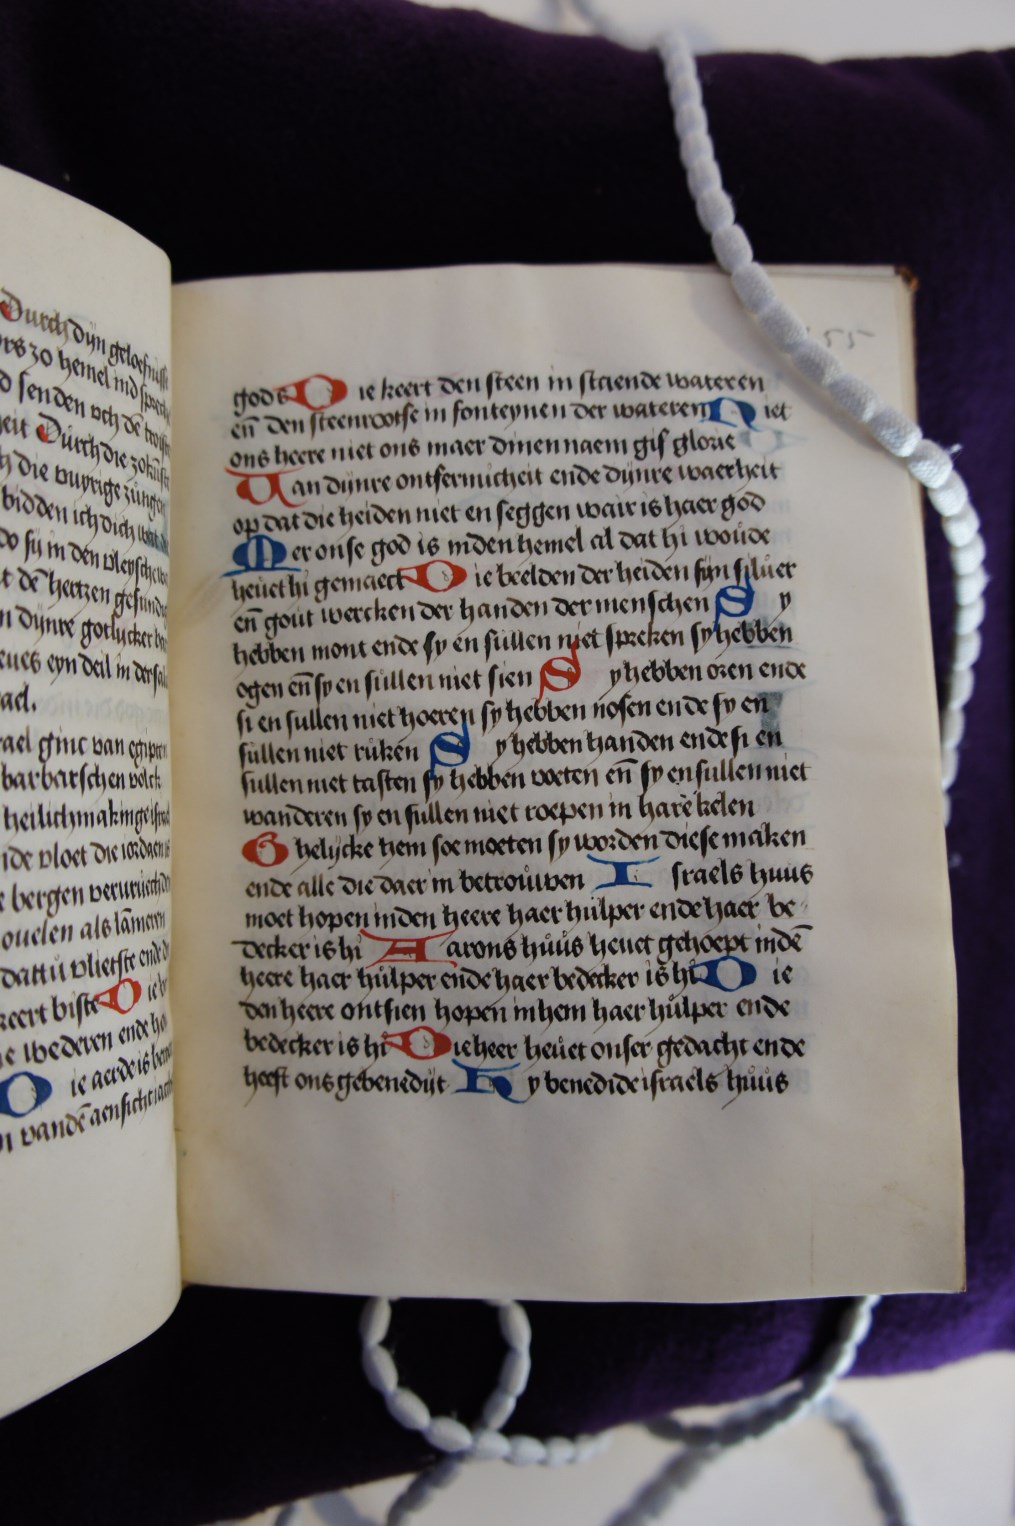 Durch dyn geloefnisse
zo hemel ind
senden vch dē
Durch die
die vuyrige zungen
bidden ich dich
do sy in den vleysche
t dē hertzen gesund
dynre gotlicker
eyn deil in der
ael.
rael ginc van egipten
barbarschen volck
heilichmakinge israel
die vloet die iordaen is
bergen
als lāmeren
dattu vlietste ende
keert biste Die
wederen ende
Die aerde is
van dē aensicht iacob
55
gods Die keert den steen in staende wateren
eñ den steenrootse in fonteynen der wateren Niet
ons heere niet ons maer dinen naem gif glorie
Uan dynre ontfermicheit ende dynre waerheit
op dat die heiden niet en seggen wair is haer god
Mer onse god is inden hemel al dat hi woude
heuet hi gemaect Die beelden der heiden syn siluer
eñ gout wercken der handen der menschen Sy
hebben mont ende sy en sullen niet spreken sy hebben
ogen eñ sy en sullen niet sien Sy hebben oren ende
si en sullen niet hoeren sy hebben nosen ende sy en
sullen niet ruken Sy hebben handen ende si en
sullen niet tasten sy hebben voeten eñ sy en sullen niet
wanderen sy en sullen niet roepen in harē kelen
Ghelijcke hem soe moeten sy worden diese maken
ende alle die daer in betrouwen Israels huus
moet hopen inden heere haer hulper ende haer be
decker is hi Aarons huus heuet gehoept indē
heere haer hulper ende haer bedecker is hi Die
den heere ontsien hopen in hem haer hulper ende
bedecker is hi Die heer heuet onser gedacht ende
heeft ons gebenedijt Hy benedide israels huus